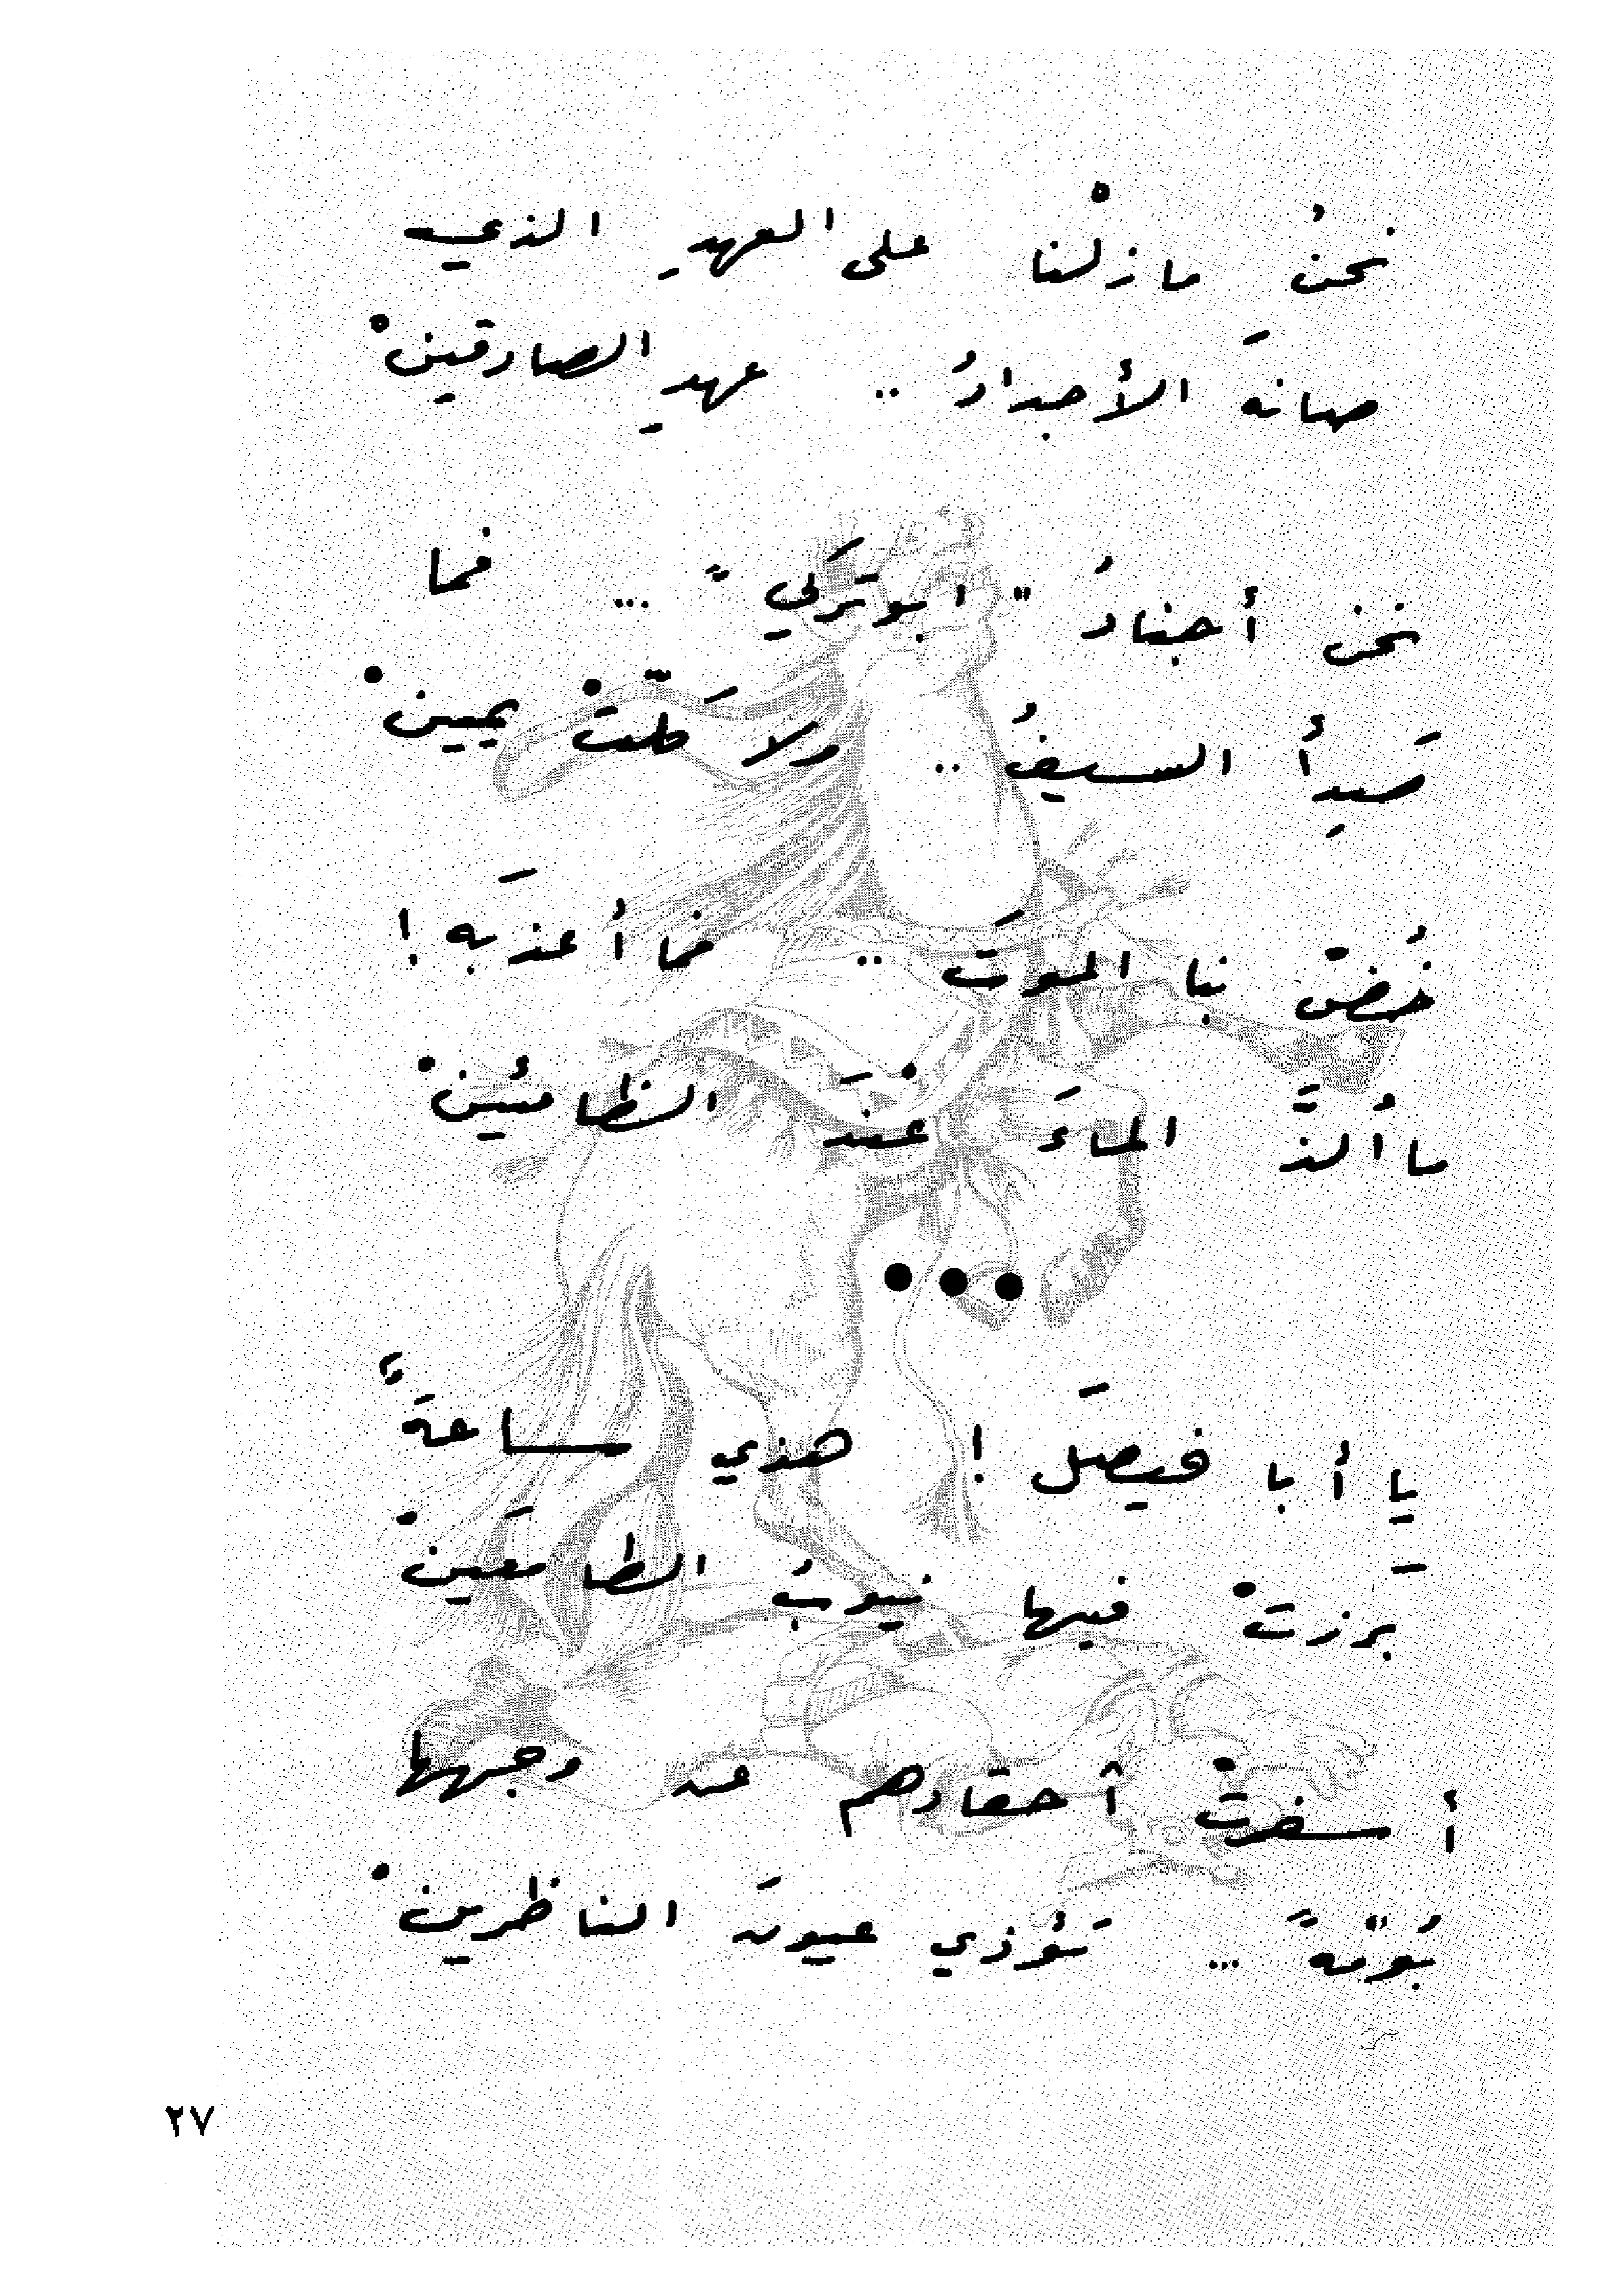 نحنُ ما زلْنا على العهدِ الذي
صانهَ الأجدادُ .. عهدِ الصادقينْ
نحن أجنادُ " ابو تركي " ... فما
صَدِأ السيفُ .. ولا كَلَّتْ يمينْ
خُضْ بنا الموتَ .. فما أعذبَه !
ما أُلذَّ الماءَ عندَ الظامئينْ
• • •
يا أبا فيصلَ ! هذي ساعةٌ
بَرزتْ فيها نيوبُ الطامعينْ
أسفرتْ أحقادهم عن وجهها
بُومّةً ... تؤذي عيونَ الناظرينْ
٢٧